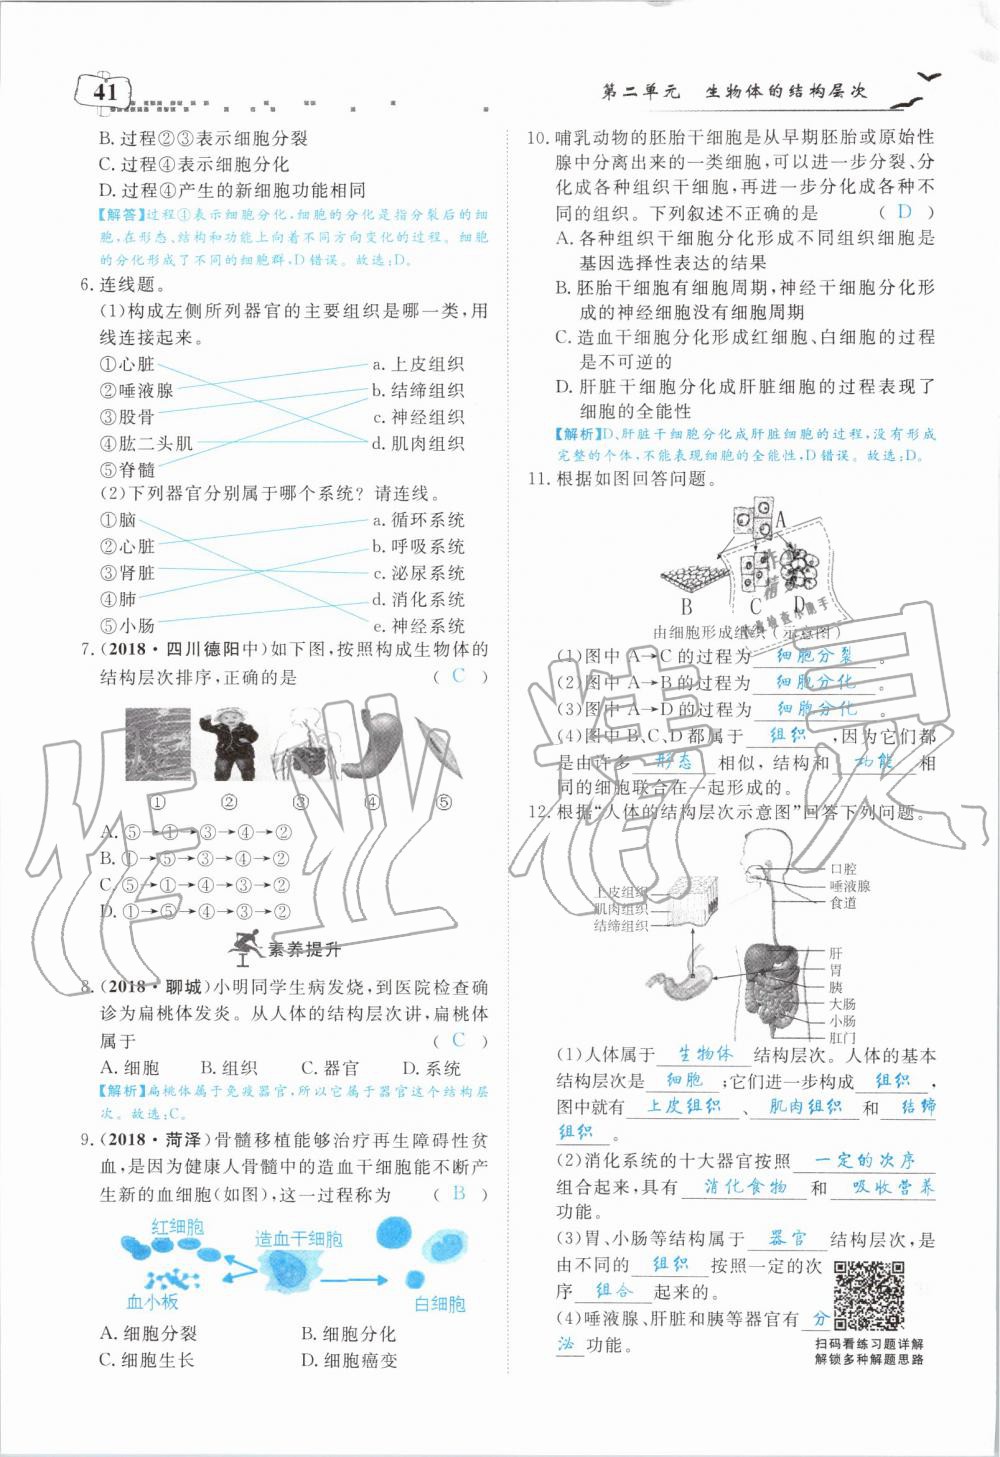 41
第二单元 生物体的结构层次
B. 过程②③表示细胞分裂
C. 过程④表示细胞分化
D. 过程④产生的新细胞功能相同
【解答】过程④表示细胞分化,细胞的分化是指分裂后的细
胞,在形态、结构和功能上向着不同方向变化的过程。细胞
的分化形成了不同的细胞群,D错误。故选:D。
6. 连线题。
(1)构成左侧所列器官的主要组织是哪一类,用
线连接起来。
①心脏 a. 上皮组织
②唾液腺 b. 结缔组织
③股骨 c. 神经组织
④肱二头肌 d. 肌肉组织
⑤脊髓
(2)下列器官分别属于哪个系统? 请连线。
①脑 a. 循环系统
②心脏 b. 呼吸系统
③肾脏 c. 泌尿系统
④肺 d. 消化系统
⑤小肠 e. 神经系统
7. (2018·四川德阳中)如下图,按照构成生物体的
结构层次排序,正确的是 ( C )
① ② ③ ④ ⑤
A. ⑤→①→③→④→②
B. ①→⑤→③→④→②
C. ⑤→①→④→③→②
D. ①→⑤→④→③→②
素养提升
8. (2018·聊城)小明同学生病发烧,到医院检查确
诊为扁桃体发炎。从人体的结构层次讲,扁桃体
属于 ( C )
A. 细胞 B. 组织 C. 器官 D. 系统
【解析】扁桃体属于免疫器官,所以它属于器官这个结构层
次。故选:C。
9. (2018·菏泽)骨髓移植能够治疗再生障碍性贫
血,是因为健康人骨髓中的造血干细胞能不断产
生新的血细胞(如图),这一过程称为 ( B )
红细胞 造血干细胞
血小板 白细胞
A. 细胞分裂 B. 细胞分化
C. 细胞生长 D. 细胞癌变
10. 哺乳动物的胚胎干细胞是从早期胚胎或原始性
腺中分离出来的一类细胞,可以进一步分裂、分
化成各种组织干细胞,再进一步分化成各种不
同的组织。下列叙述不正确的是 ( D )
A. 各种组织干细胞分化形成不同组织细胞是
基因选择性表达的结果
B. 胚胎干细胞有细胞周期,神经干细胞分化形
成的神经细胞没有细胞周期
C. 造血干细胞分化形成红细胞、白细胞的过程
是不可逆的
D. 肝脏干细胞分化成肝脏细胞的过程表现了
细胞的全能性
【解析】D、肝脏干细胞分化成肝脏细胞的过程,没有形成
完整的个体,不能表现细胞的全能性,D错误。故选:D。
11. 根据如图回答问题。
A
B C D
由细胞形成组织(示意图)
(1)图中 A→C 的过程为 细胞分裂 。
(2)图中 A→B 的过程为 细胞分化 。
(3)图中 A→D 的过程为 细胞分化 。
(4)图中 B、C、D 都属于 组织 ,因为它们都
是由许多 形态 相似,结构和 功能 相
同的细胞联合在一起形成的。
12. 根据“人体的结构层次示意图”回答下列问题。
上皮组织
肌肉组织
结缔组织
口腔
唾液腺
食道
肝
胃
胰
大肠
小肠
肛门
(1)人体属于 生物体 结构层次。人体的基本
结构层次是 细胞 ;它们进一步构成 组织 ,
图中就有 上皮组织 、 肌肉组织 和 结缔
组织 。
(2)消化系统的十大器官按照 一定的次序
组合起来,具有 消化食物 和 吸收营养
功能。
(3)胃、小肠等结构属于 器官 结构层次,是
由不同的 组织 按照一定的次
序 组合 起来的。
(4)唾液腺、肝脏和胰等器官有 分
泌 功能。
扫码看练习题详解
解锁多种解题思路
作业精灵